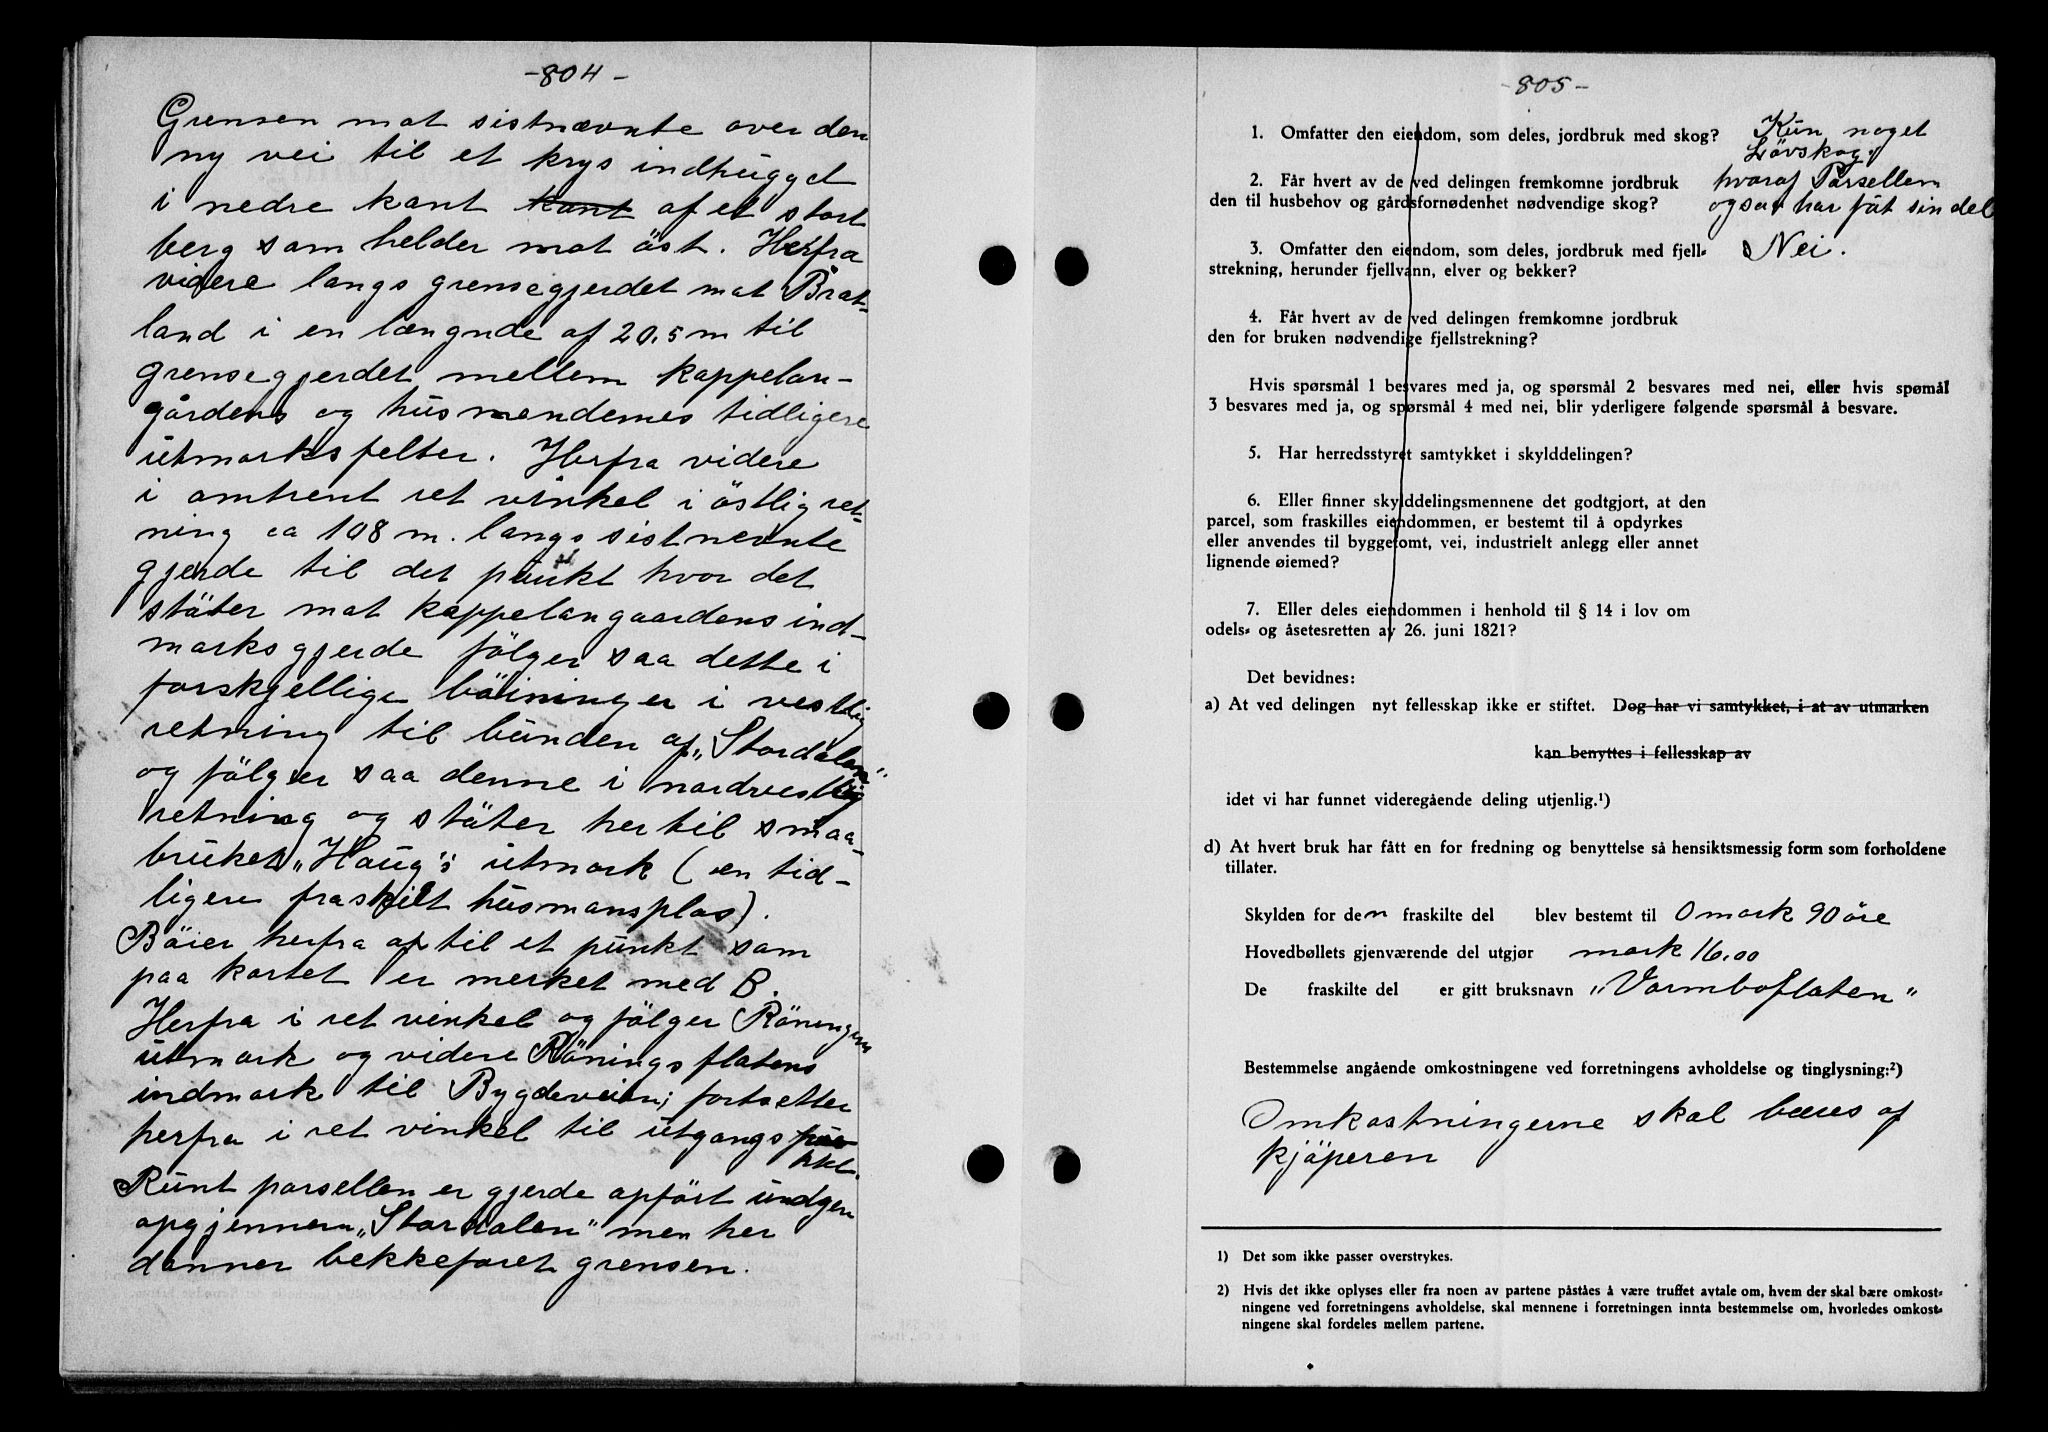 -804-
Grensen mot sistnævnte over den
ny vei til et krys indhugget
i nedre kant kant af et stort
berg som helder mot öst. Herfra
videre langs grensegjerdet mot Brat-
land i en længde af 20.5 m til
grensegjerdet mellem kappelan-
gårdens og husmændenes tidligere
utmarksfelter. Herfra videre
i omtrent ret vinkel i östlig ret-
ning ca 108 m. langs sistnevnte
gjerde til det punkt hvor det
stöter mot kappelangaardens ind-
marksgjerde fölger saa dette i
forskjellige böininger i vestlig
retning til bunden af „Stordalen"
og fölger saa denne i nordvestlig
retning og stöter her til smaa-
bruket „Haug"s utmark (en tid-
ligere fraskilt husmansplas).
Böier herfra af til et punkt som
paa kartet er merket med B.
Herfra i ret vinkel og fölger Röningens
utmark og videre Röningsflatens
indmark til Bygdeveien; fortsetter
herfra i ret vinkel til utgangspu-
nkt.
Runt parsellen er gjerde opfört undgen
opgjennem „Stordalen" men her
danner bekkefaret grensen.
-805-
1. Omfatter den eiendom, som deles, jordbruk med skog? Kun noget
Lövskog.
2. Får hvert av de ved delingen fremkomne jordbruk hvoraf Parsellen
den til husbehov og gårdsfornødenhet nødvendige skog? ogsaa har fåt sin del
3. Omfatter den eiendom, som deles, jordbruk med fjell- Nei.
strekning, herunder fjellvann, elver og bekker?
4. Får hvert av de ved delingen fremkomne jordbruk
den for bruken nødvendige fjellstrekning?
Hvis spørsmål 1 besvares med ja, og spørsmål 2 besvares med nei, eller hvis spømål
3 besvares med ja, og spørsmål 4 med nei, blir yderligere følgende spørsmål å besvare.
5. Har herredsstyret samtykket i skylddelingen?
6. Eller finner skylddelingsmennene det godtgjort, at den
parcel, som fraskilles eiendommen, er bestemt til å opdyrkes
eller anvendes til byggetomt, vei, industrielt anlegg eller annet
lignende øiemed?
7. Eller deles eiendommen i henhold til § 14 i lov om
odels- og åsetesretten av 26. juni 1821?
Det bevidnes:
a) At ved delingen nyt fellesskap ikke er stiftet. Dog har vi samtykket, i at av utmarken
kan benyttes i fellesskap av
idet vi har funnet videregående deling utjenlig.¹)
d) At hvert bruk har fått en for fredning og benyttelse så hensiktsmessig form som forholdene
tillater.
Skylden for den fraskilte del blev bestemt til 0 mark 90 öre
Hovedbøllets gjenværende del utgjør mark 16.00
De fraskilte del er gitt bruksnavn „Varmboflaten"
Bestemmelse angående omkostningene ved forretningens avholdelse og tinglysning:²)
Omkostningerne skal bæres af
kjöperen
1) Det som ikke passer overstrykes.
2) Hvis det ikke oplyses eller fra noen av partene påståes å være truffet avtale om, hvem der skal bære omkost-
ningene ved forretningens avholdelse, skal mennene i forretningen innta bestemmelse om, hvorledes omkost-
ningene skal fordeles mellem partene.